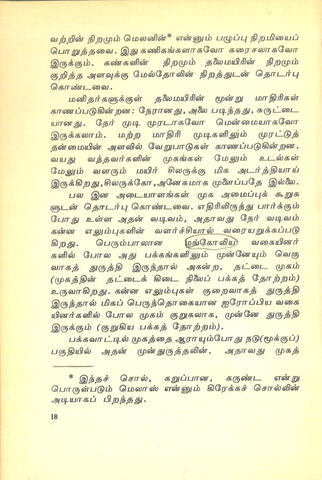 வற்றின் நிறமும் மெலனின்* என்னும் பழுப்பு நிறமியைப்
பொறுத்தவை. இது கணிகங்களாகவோ கரைசலாகவோ
இருக்கும். கண்களின் நிறமும் தலைமயிரின் நிறமும்
குறித்த அளவுக்கு மேல்தோலின் நிறத்துடன் தொடர்பு
கொண்டவை.
மனிதர்களுக்குள் தலைமயிரின் மூன்று மாதிரிகள்
காணப்படுகின்றன: நேரானது, அலை படிந்தது, சுருட்டை
யானது. நேர் முடி முரடாகவோ மென்மையாகவோ
இருக்கலாம். மற்ற மாதிரி முடிகளிலும் முரட்டுத்
தன்மையின் அளவில் வேறுபாடுகள் காணப்படுகின்றன.
வயது வந்தவர்களின் முகங்கள் மேலும் உடல்கள்
மேலும் வளரும் மயிர் சிலருக்கு மிக அடர்த்தியாய்
இருக்கிறது, சிலருக்கோ, அனேகமாக முளைப்பதே இல்லை.
பல இன அடையாளங்கள் முக அமைப்புக் கூறுக
ளுடன் தொடர்பு கொண்டவை. எதிரிலிருந்து பார்க்கும்
போது உள்ள அதன் வடிவம், அதாவது நேர் வடிவம்
கன்ன எலும்புகளின் வளர்ச்சியால் வரையறுக்கப்படு
கிறது. பெரும்பாலான மங்கோலிய வகையினர்
களில் போல அது பக்கங்களிலும் முன்னேயும் வெகு
வாகத் துருத்தி இருந்தால் அகன்ற, தட்டை முகம்
(முகத்தின் தட்டைக் கிடை நிலைப் பக்கத் தோற்றம்)
உருவாகிறது. கன்ன எலும்புகள் குறைவாகத் துருத்தி
இருந்தால் மிகப் பெருந்தொகையான ஐரோப்பிய வகை
யினர்களில் போல முகம் குறுகலாக, முன்னே துருத்தி
இருக்கும் (குறுகிய பக்கத் தோற்றம்).
பக்கவாட்டில் முகத்தை ஆராயும்போது நடு(மூக்குப்)
பகுதியில் அதன் முன்துருத்தலின், அதாவது முகத்
* இந்தச் சொல், கறுப்பான, கருண்ட என்று
பொருள்படும் மெலாஸ் என்னும் கிரேக்கச் சொல்லின்
அடியாகப் பிறந்தது.
18